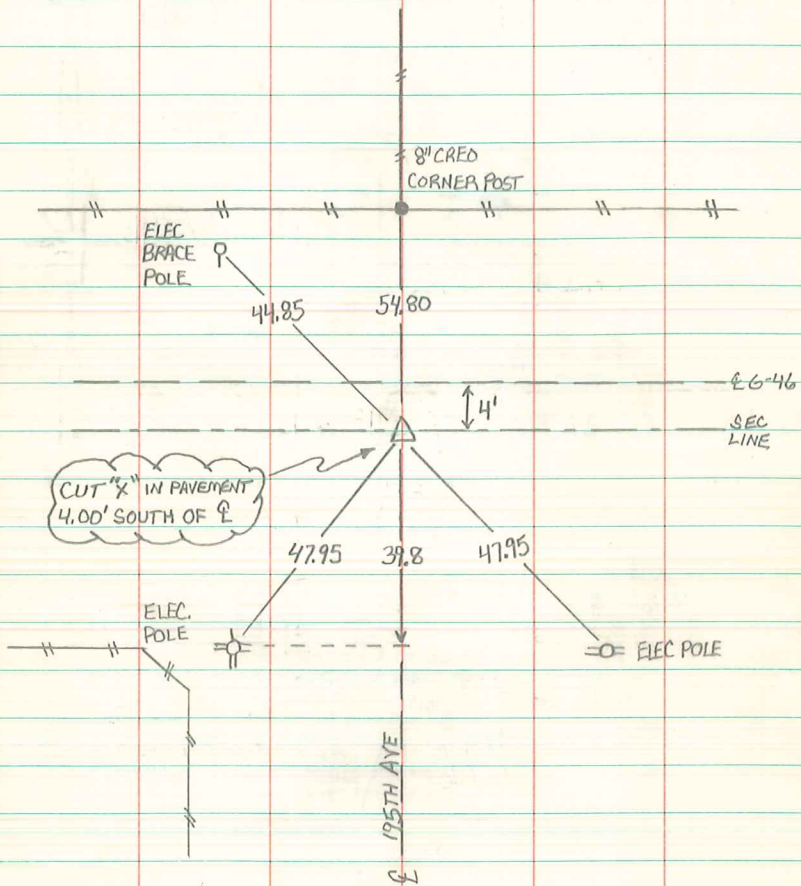 8" CREO
CORNER POST
ELEC
BRACE
POLE
44.85
54.80
℄ G-46
4'
SEC
LINE
CUT "X" IN PAVEMENT
4.00' SOUTH OF ℄
47.95
39.8
47.95
ELEC.
POLE
ELEC POLE
195TH AVE
℄